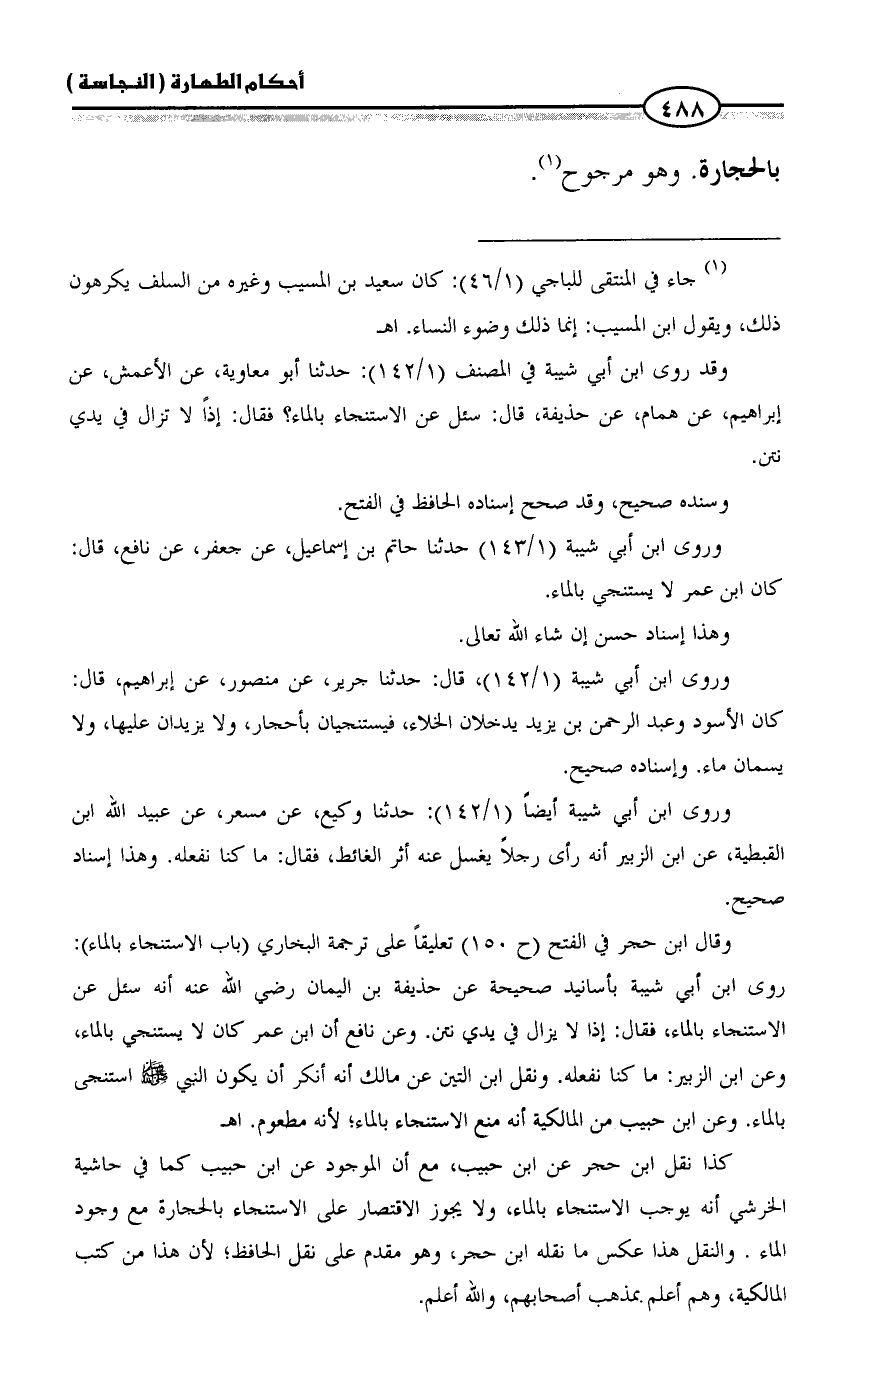 أحكام الطهارة (النجاسة)
٤٨٨
بالحجارة. وهو مرجوح(١).
(١) جاء في المنتقى للباجي (٤٦/١): كان سعيد بن المسيب وغيره من السلف يكرهون
ذلك، ويقول ابن المسيب: إنما ذلك وضوء النساء. اهـ
وقد روى ابن أبي شيبة في المصنف (١٤٢/١): حدثنا أبو معاوية، عن الأعمش، عن
إبراهيم، عن همام، عن حذيفة، قال: سئل عن الاستنجاء بالماء؟ فقال: إذاً لا تزال في يدي
نتن.
وسنده صحيح، وقد صحح إسناده الحافظ في الفتح.
وروى ابن أبي شيبة (١٤٣/١) حدثنا حاتم بن إسماعيل، عن جعفر، عن نافع، قال:
كان ابن عمر لا يستنجي بالماء.
وهذا إسناد حسن إن شاء الله تعالى.
وروى ابن أبي شيبة (١٤٢/١)، قال: حدثنا جرير، عن منصور، عن إبراهيم، قال:
كان الأسود وعبد الرحمن بن يزيد يدخلان الخلاء، فيستنجيان بأحجار، ولا يزيدان عليها، ولا
يسمان ماء. وإسناده صحيح.
وروى ابن أبي شيبة أيضاً (١٤٢/١): حدثنا وكيع، عن مسعر، عن عبيد الله ابن
القبطية، عن ابن الزبير أنه رأى رجلاً يغسل عنه أثر الغائط، فقال: ما كنا نفعله. وهذا إسناد
صحيح.
وقال ابن حجر في الفتح (ح ١٥٠) تعليقاً على ترجمة البخاري (باب الاستنجاء بالماء):
روى ابن أبي شيبة بأسانيد صحيحة عن حذيفة بن اليمان رضي الله عنه أنه سئل عن
الاستنجاء بالماء، فقال: إذا لا يزال في يدي نتن. وعن نافع أن ابن عمر كان لا يستنجي بالماء،
وعن ابن الزبير: ما كنا نفعله. ونقل ابن التين عن مالك أنه أنكر أن يكون النبي ﷺ استنجى
بالماء. وعن ابن حبيب من المالكية أنه منع الاستنجاء بالماء؛ لأنه مطعوم. اهـ
كذا نقل ابن حجر عن ابن حبيب، مع أن الموجود عن ابن حبيب كما في حاشية
الخرشي أنه يوجب الاستنجاء بالماء، ولا يجوز الاقتصار على الاستنجاء بالحجارة مع وجود
الماء . والنقل هذا عكس ما نقله ابن حجر، وهو مقدم على نقل الحافظ؛ لأن هذا من كتب
المالكية، وهم أعلم بمذهب أصحابهم، والله أعلم.